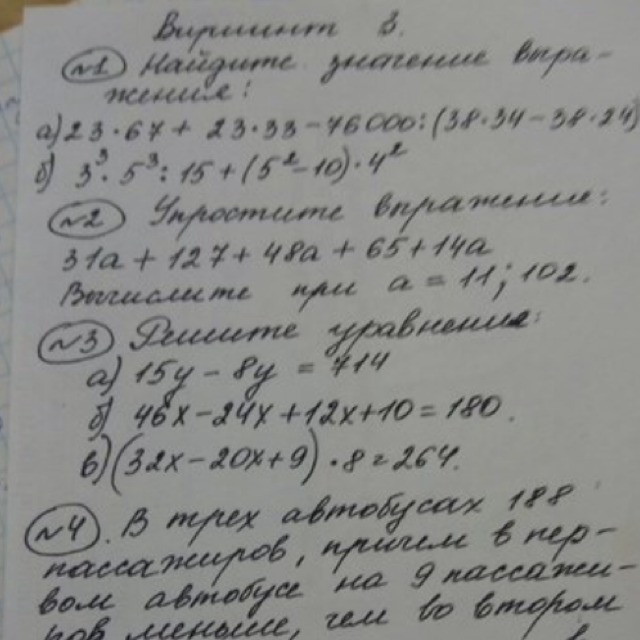 Вариант 3.
№1 Найдите значение выра-
жения:
а) 23·67 + 23·33 - 76000 : (38·34 - 38·24)
б) 3³·5³ : 15 + (5² - 10)·4²
№2 Упростите выражение:
31а + 127 + 48а + 65 + 14а
Вычислите при а = 11; 102.
№3 Решите уравнения:
а) 15у - 8у = 714
б) 46х - 24х + 12х + 10 = 180.
в) (32х - 20х + 9)·8 = 264.
№4. В трех автобусах 188
пассажиров, причем в пер-
вом автобусе на 9 пассажи-
ров меньше, чем во втором